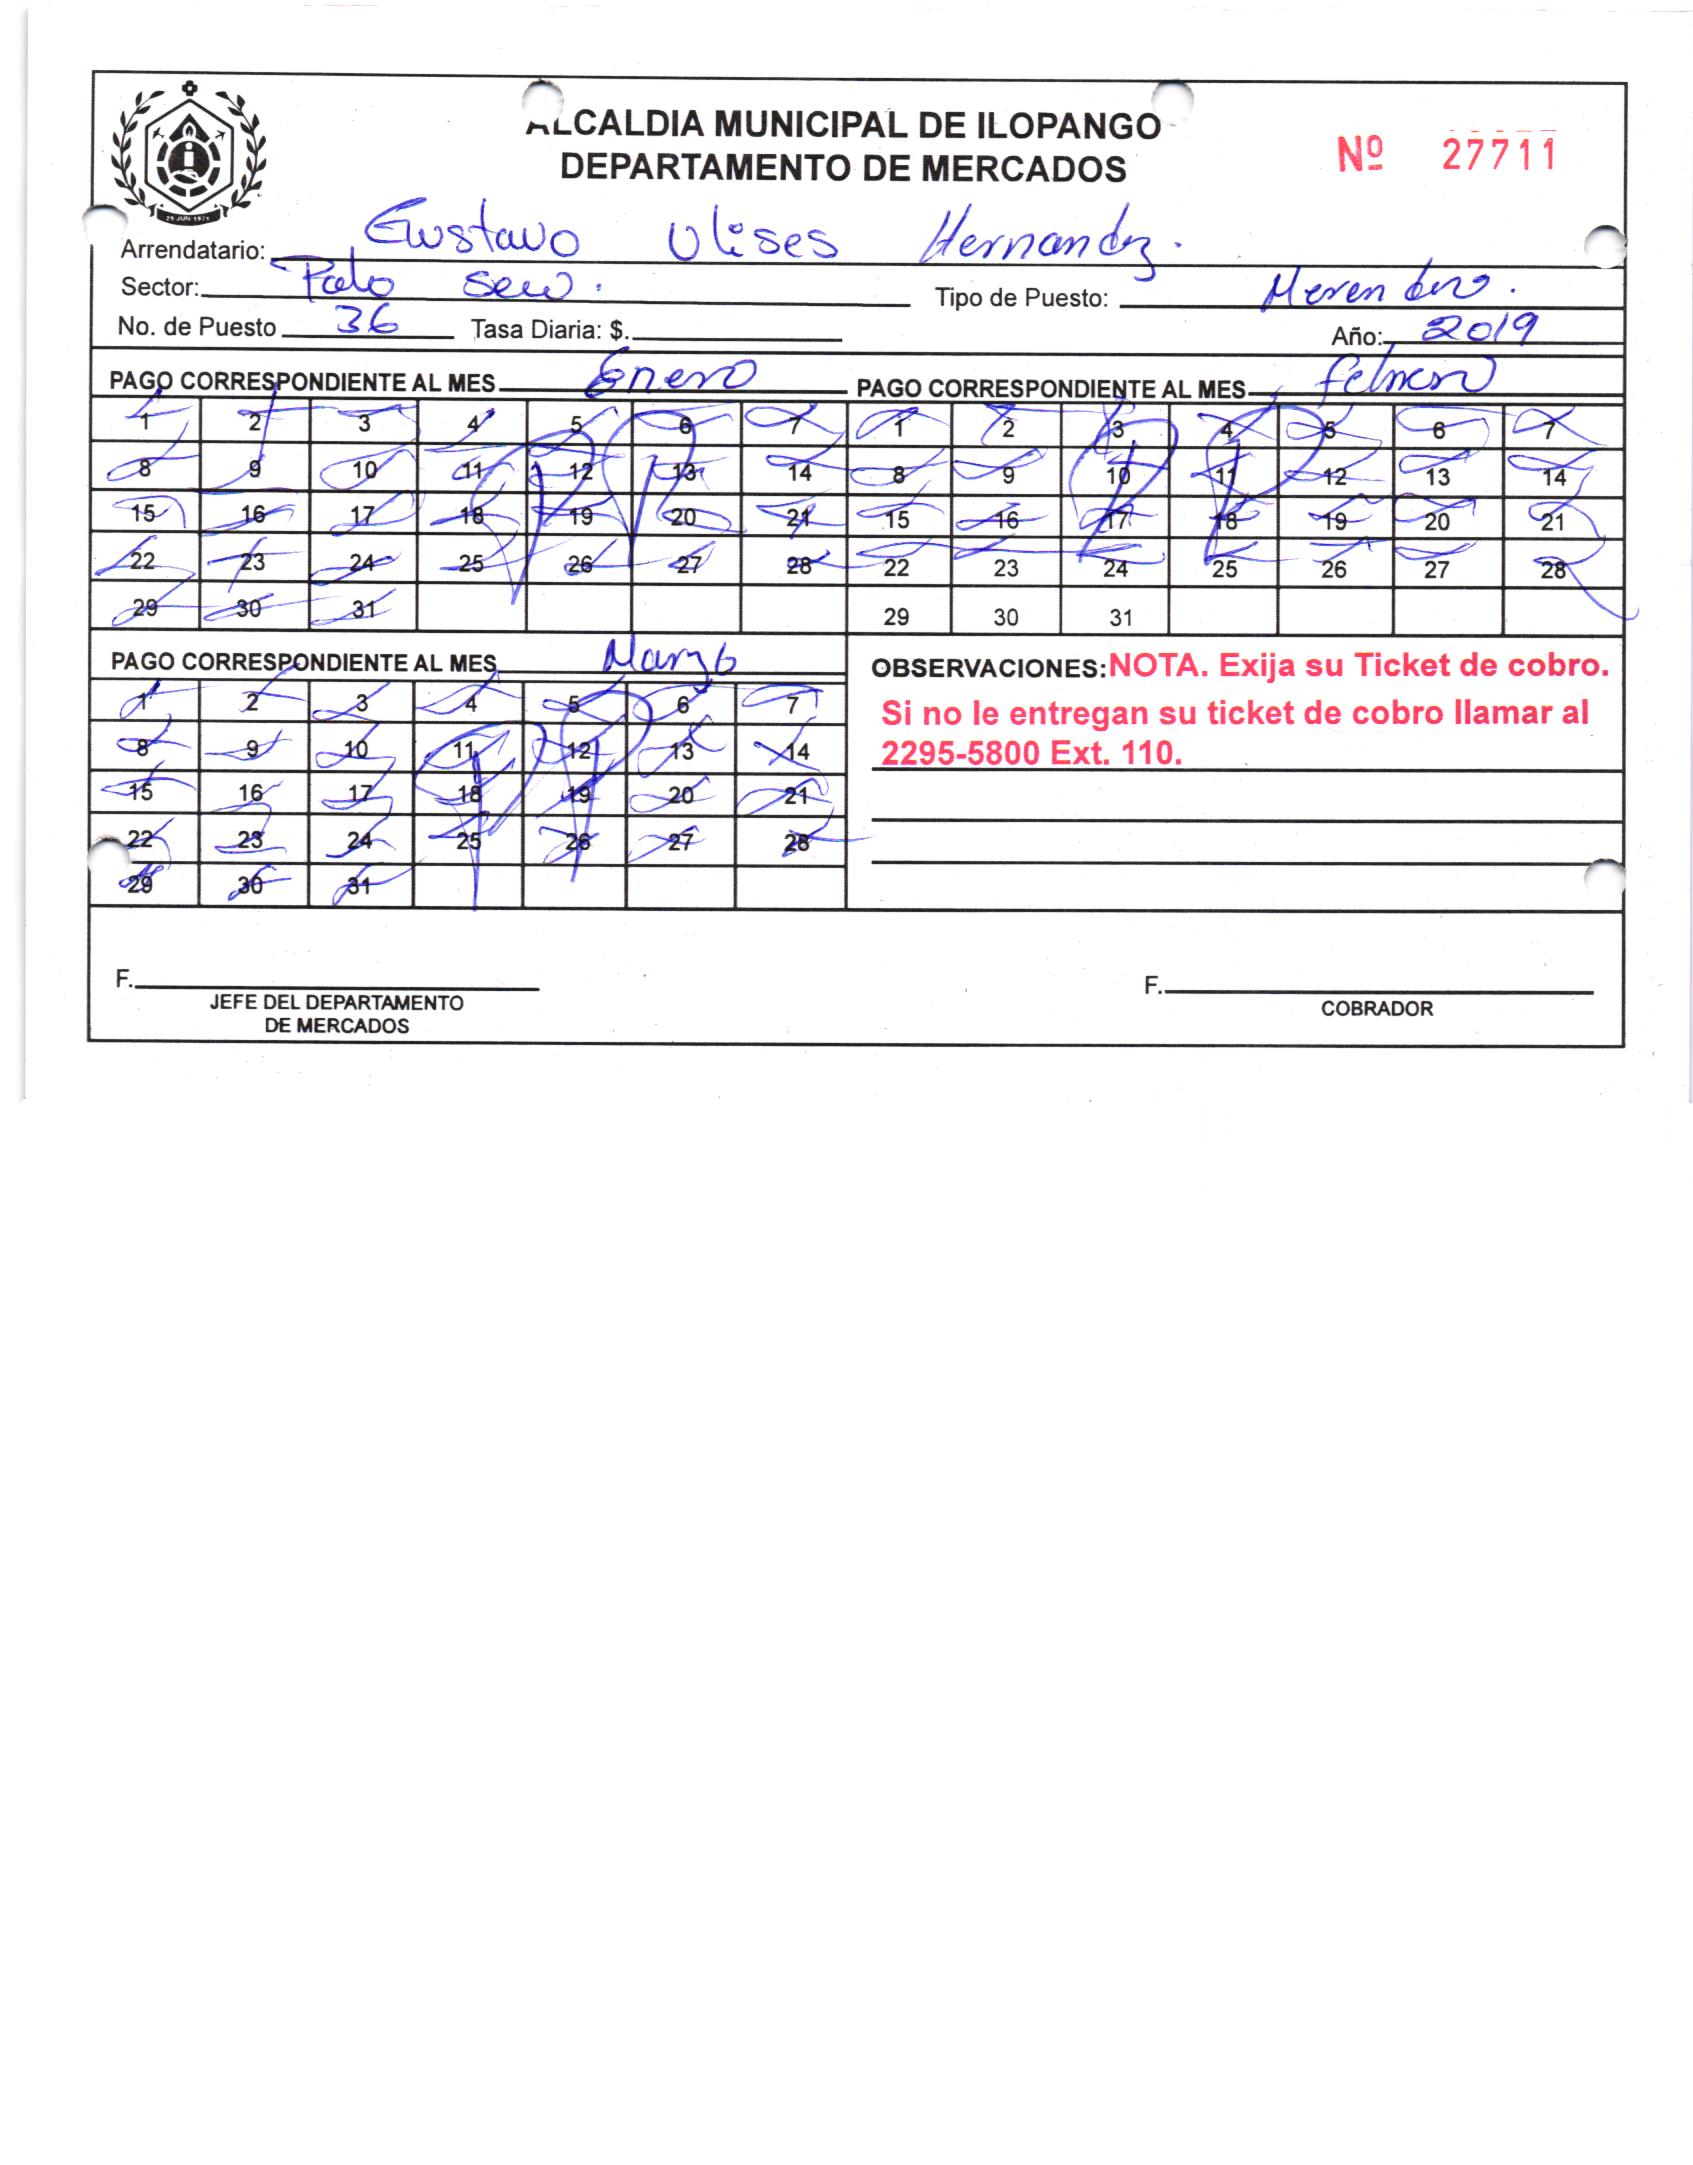 ALCALDIA MUNICIPAL DE ILOPANGO
DEPARTAMENTO DE MERCADOS
Nº 27711
29 JUN 1971
Arrendatario: Gustavo Ulises Hernandez.
Sector: Palo seco. Tipo de Puesto: Merendero.
No. de Puesto 36 Tasa Diaria: $. Año: 2019
PAGO CORRESPONDIENTE AL MES Enero PAGO CORRESPONDIENTE AL MES febrero
1 2 3 4 5 6 7 1 2 3 4 5 6 7
8 9 10 11 12 13 14 8 9 10 11 12 13 14
15 16 17 18 19 20 21 15 16 17 18 19 20 21
22 23 24 25 26 27 28 22 23 24 25 26 27 28
29 30 31 29 30 31
PAGO CORRESPONDIENTE AL MES Marzo
1 2 3 4 5 6 7
8 9 10 11 12 13 14
15 16 17 18 19 20 21
22 23 24 25 26 27 28
29 30 31
OBSERVACIONES: NOTA. Exija su Ticket de cobro.
Si no le entregan su ticket de cobro llamar al
2295-5800 Ext. 110.
F.
JEFE DEL DEPARTAMENTO
DE MERCADOS
F.
COBRADOR